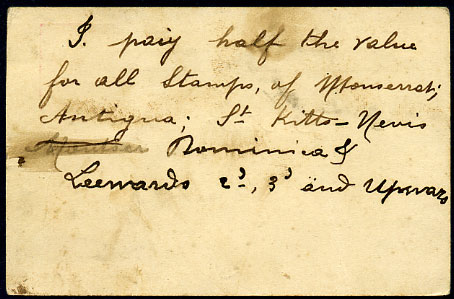 I. pay half the value
for all Stamps, of Monserrat;
Antigua; St Kitts-Nevis
Dominica &
Leewards 2d, 3d and Upwars